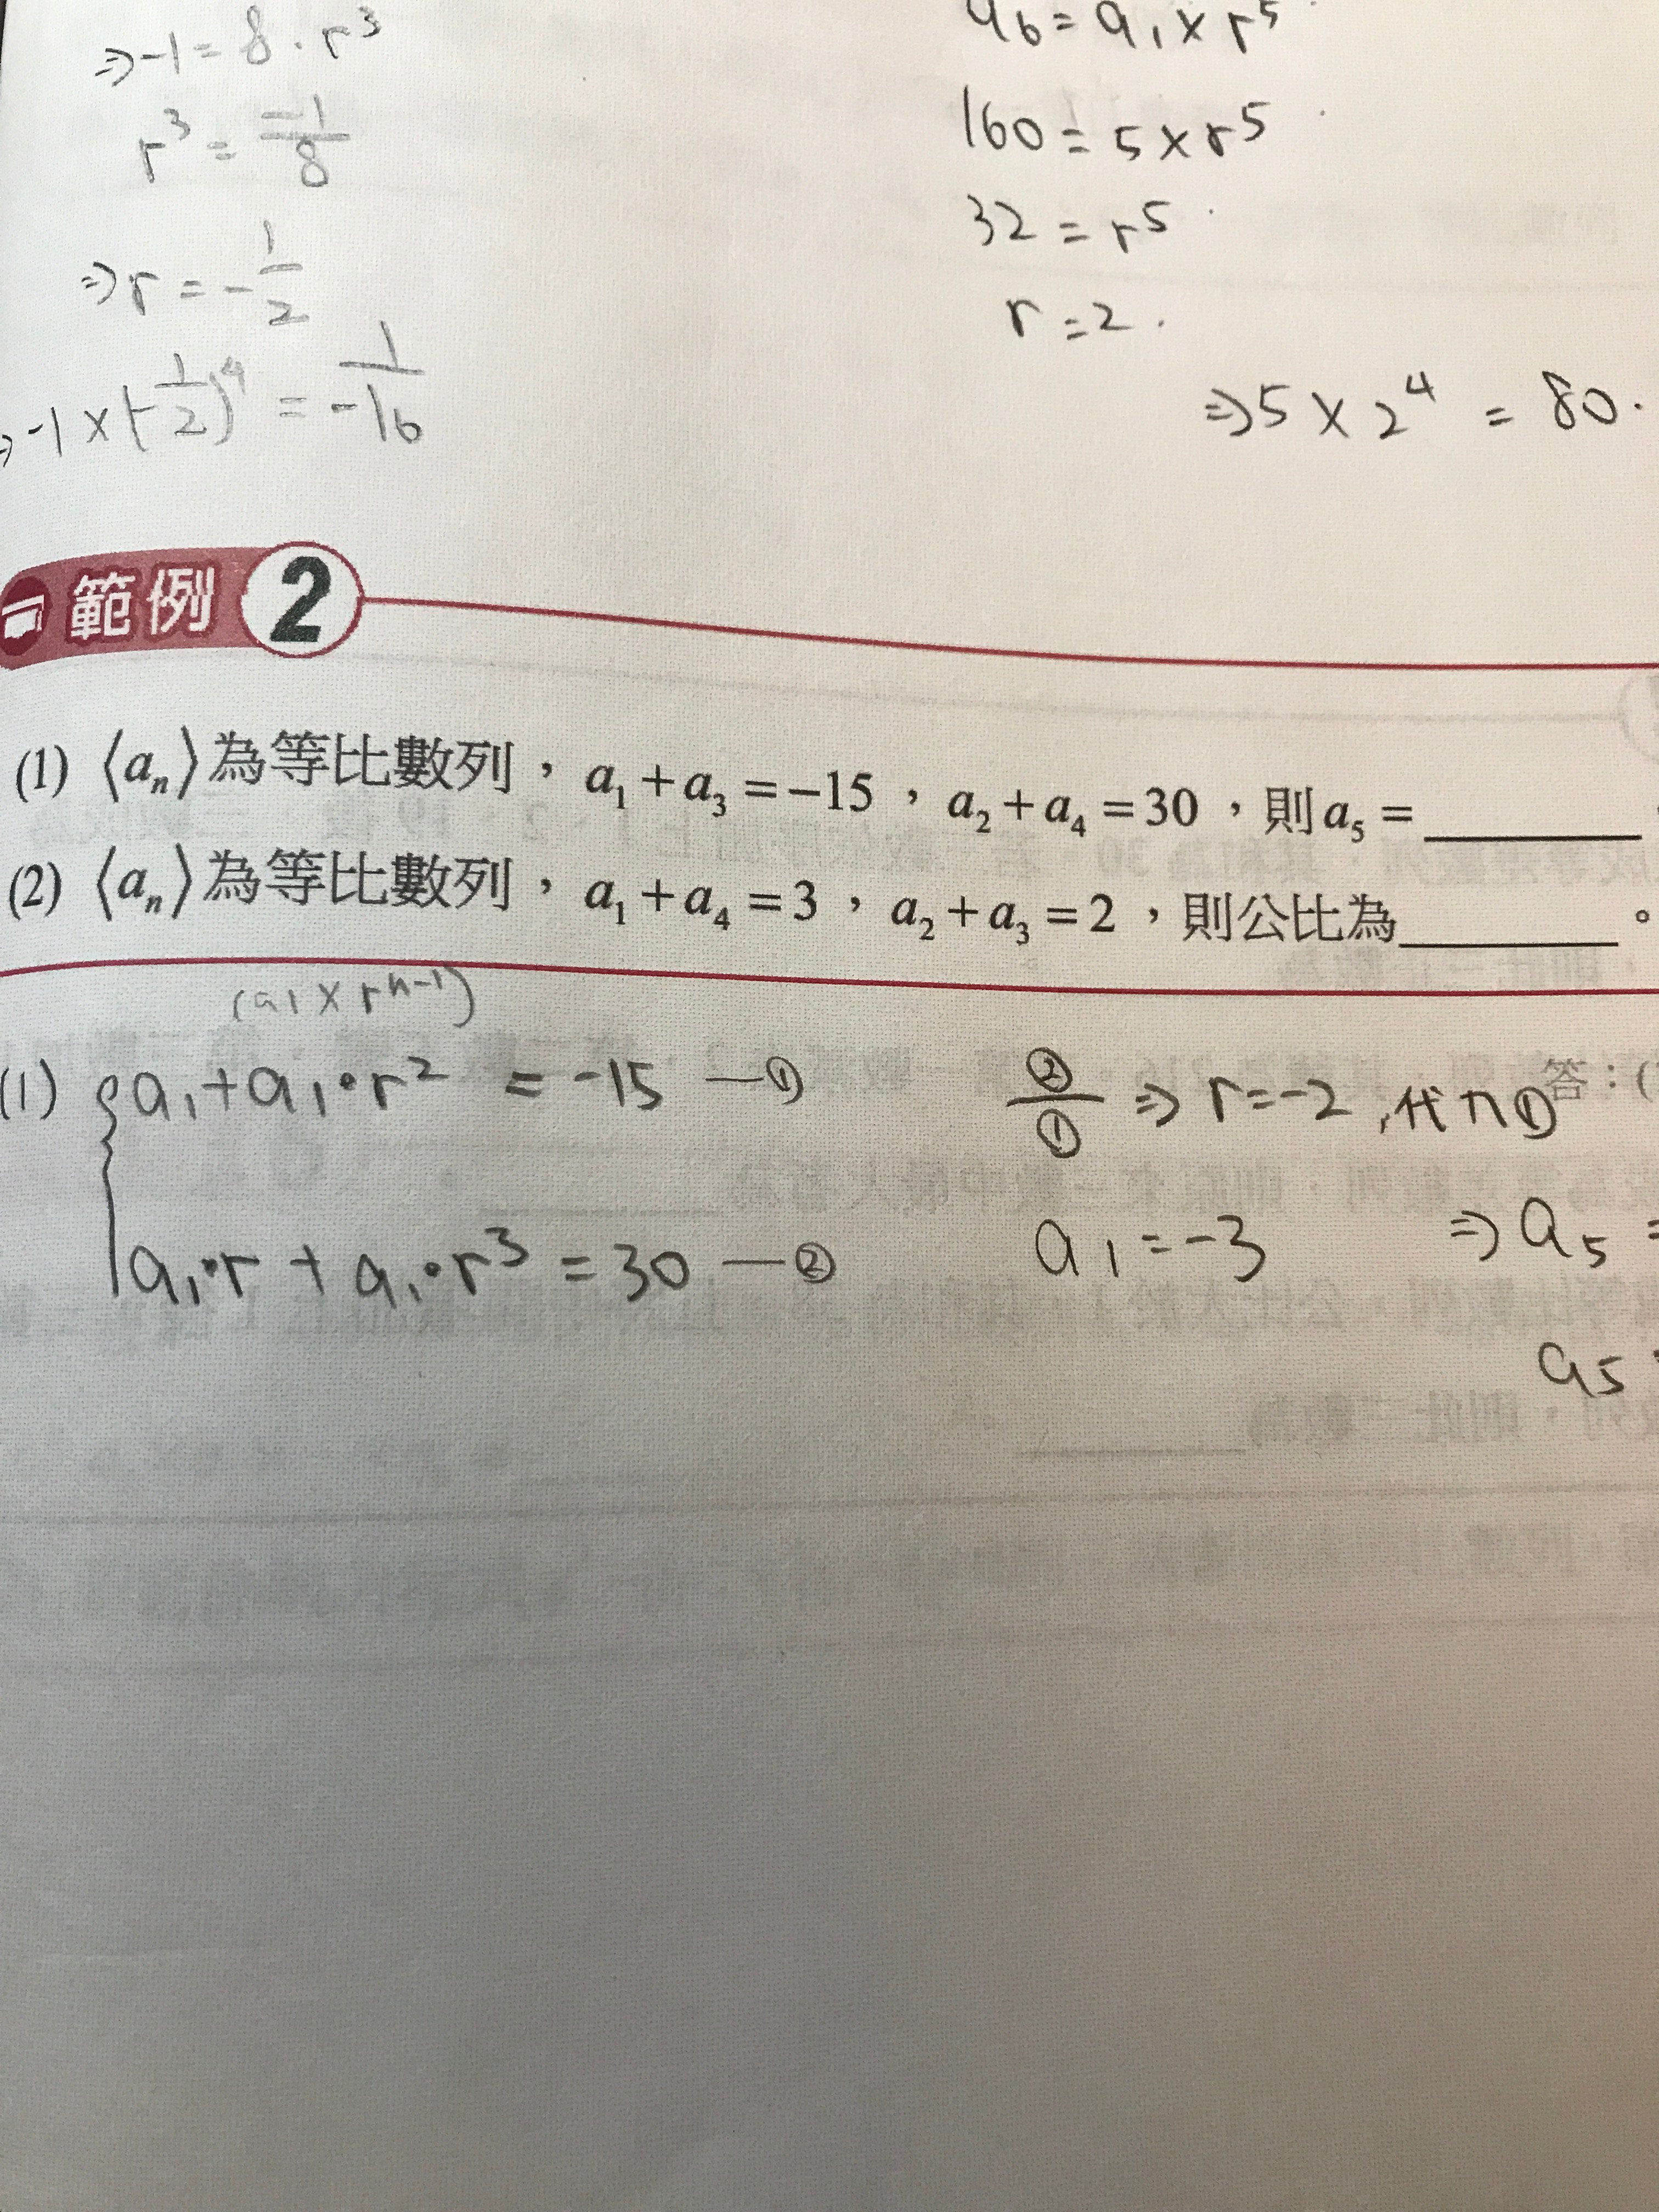 ⇒-1=8·r³
r³=-1/8
⇒r=-1/2
⇒-1×(-1/2)⁴=1/-16
a₆=a₁×r⁵
160=5×r⁵
32=r⁵
r=2.
⇒5×2⁴=80.
範例 2
(1) ⟨aₙ⟩為等比數列，a₁+a₃=−15，a₂+a₄=30，則a₅=________
(2) ⟨aₙ⟩為等比數列，a₁+a₄=3，a₂+a₃=2，則公比為________。
(a₁×rⁿ⁻¹)
(1) {a₁+a₁·r²=-15—①
a₁·r+a₁·r³=30—②
答：(
②/①⇒r=-2,代入①
a₁=-3 ⇒a₅=
a₅=